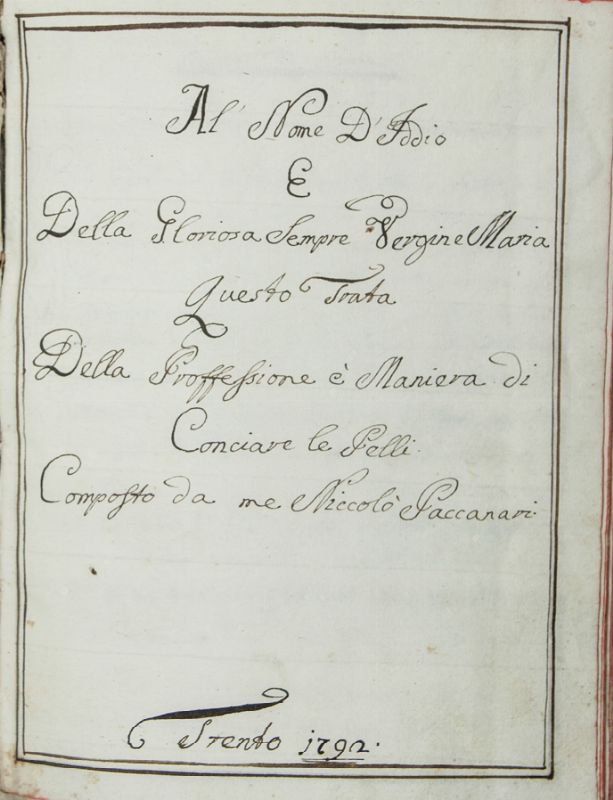 Al' Nome D'Iddio
E
Della Gloriosa Sempre Vergine Maria
Questo Trata
Della Proffeſsione è Maniera di
Conciare le Pelli.
Compoſto da me Niccolò Paccanari.
Trento 1792.